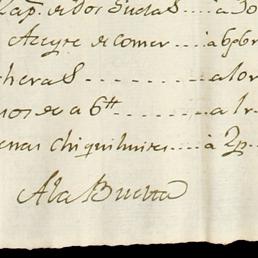 Zap.s de Dos Suelas ... a 30
Azeyte de comer .... a 6p6r
cheras ........ a lor
nos de a 6tt ..... a 1r
enas Chiquihuites ..... à 2p.
A la Buelta